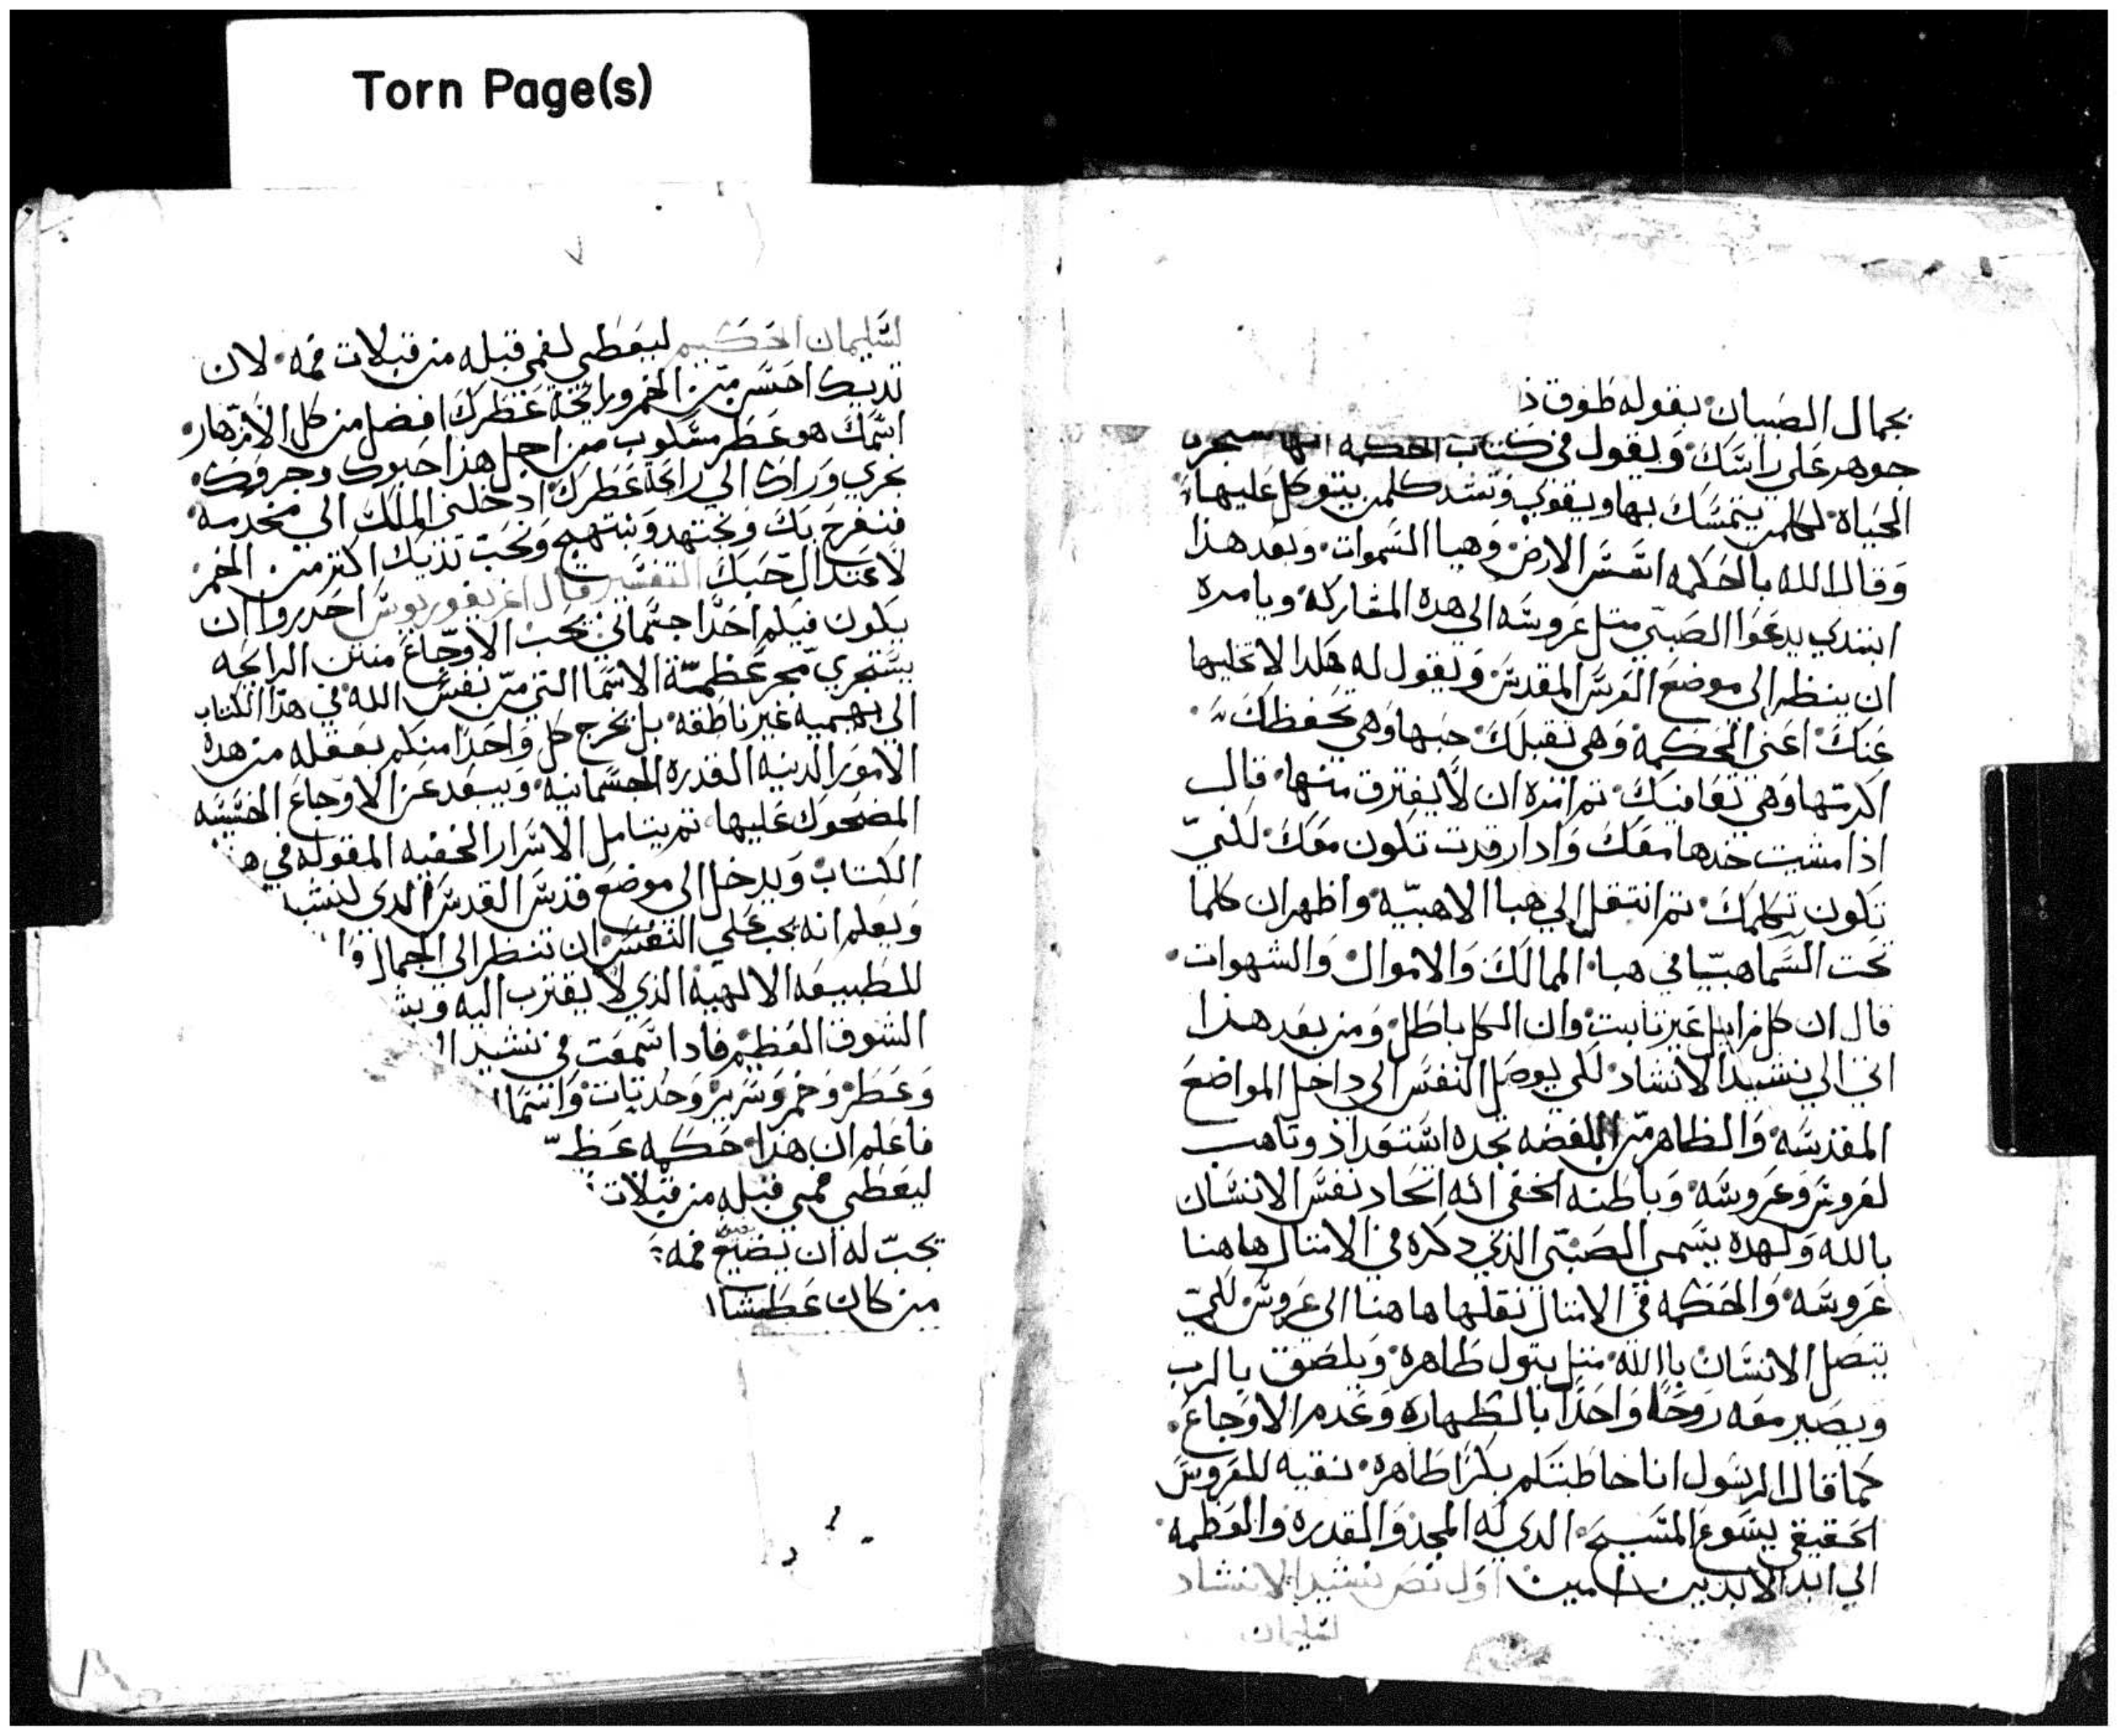 Torn Page(s)
بجمال الصبيان بقوله طوق د
جوهر على راسك ويقول في كتاب الحكمه انها سجره
الحياة لكلمن يتمسك بها ويقوي وتسند كلمن يتوكل عليها
وقال الله بالحكمه اسس الارض وهيا السموات وبعد هذا
ابتدي يدعوا الصبي متل عروسه الي هده المشاركه ويامره
ان ينظر الي موضع العرس المقدس ويقول له هكدا لا تخليها
عنك اعني الحكمة وهي تقبلك حبها وهي تحفظك
اكرمها وهي تعانقك تم امره ان لا يفترق منها قال
ادا مشيت خدها معك وادا رقدت تكون معك لكي
تكون تكلمك تم انتقل الي هبا الاهبيه واظهر ان كلما
تحت السما هبا في هبا الممالك والاموال والشهوات
قال ان كل زايل غير تابت وان الكل باطل ومن بعد هدا
اتي الي نشيد الانشاد لكي يوصل النفس الي داخل المواضع
المقدسه والظاهر من اللفضه نجده استعداد وتاهب
لعروس وعروسه وباطنه الخفي انه اتحاد نفس الانسان
بالله ولهده يسمي الصبي الذي دكره في الامتال هاهنا
عروسه والحكمه في الامتال نقلها هاهنا الي عروس لكي
يتصل الانسان باالله متل بتول طاهرة ويلصق بالرب
ويصير معه روحا واحدا بالطهاره وعدم الاوجاع
كما قال الرسول انا خاطبتكم بكرا طاهره نقيه للعروس
الحقيقي يسوع المسيح الدي له المجد والقدره والعظمه
الي ابد الابدين امين اول نص نشيد الانشاد
لسليمان
٧
لسليمان الحكيم ليعطي لفمي قبله من قبلات فمه لان
تديك احسن من الخمر ورائحة عطرك افضل من كل الازهار
اسمك هو عطر مسكوب من اجل هذا احبوك وجروك
نجري وراك الي رائحة عطرك ادخلني الملك الي مخدعه
فنفرح بك ونجتهد ونبتهج ونحب تديك اكتر من الخمر
لاعتدال حبك التفسير قال اغريغوريوس احدروا ان
يكون فيكم احدا جسماني يحب الاوجاع منتن الرايحه
يستجري الاسما التي من نفس الله في هذا الكتاب
الي بهيميه غير ناطقه بل يخرج كل واحدا منكم بعقله من هدة
الامور الدنيه القدره الجسمانيه ويبعد عن الاوجاع الخسيسه
المضحوك عليها تم يتامل الاسرار الخفيه المقوله في هذ
الكتاب ويدخل الي موضع قدس القدس الدي لنشيد
ويعلم انه يجب علي النفس ان تنظر الي الجمال وا
للطبيعه الالهيه الذي لا يقترب اليه وبش
الشوق العظيم فادا سمعت في نشيد ال
وعطر وخمر وسرير وحدتات واسما
فاعلم ان هذا حكمه عظ
ليعطي فمي قبله من قبلات
يجب له ان يضع فمه
من كان عطشا